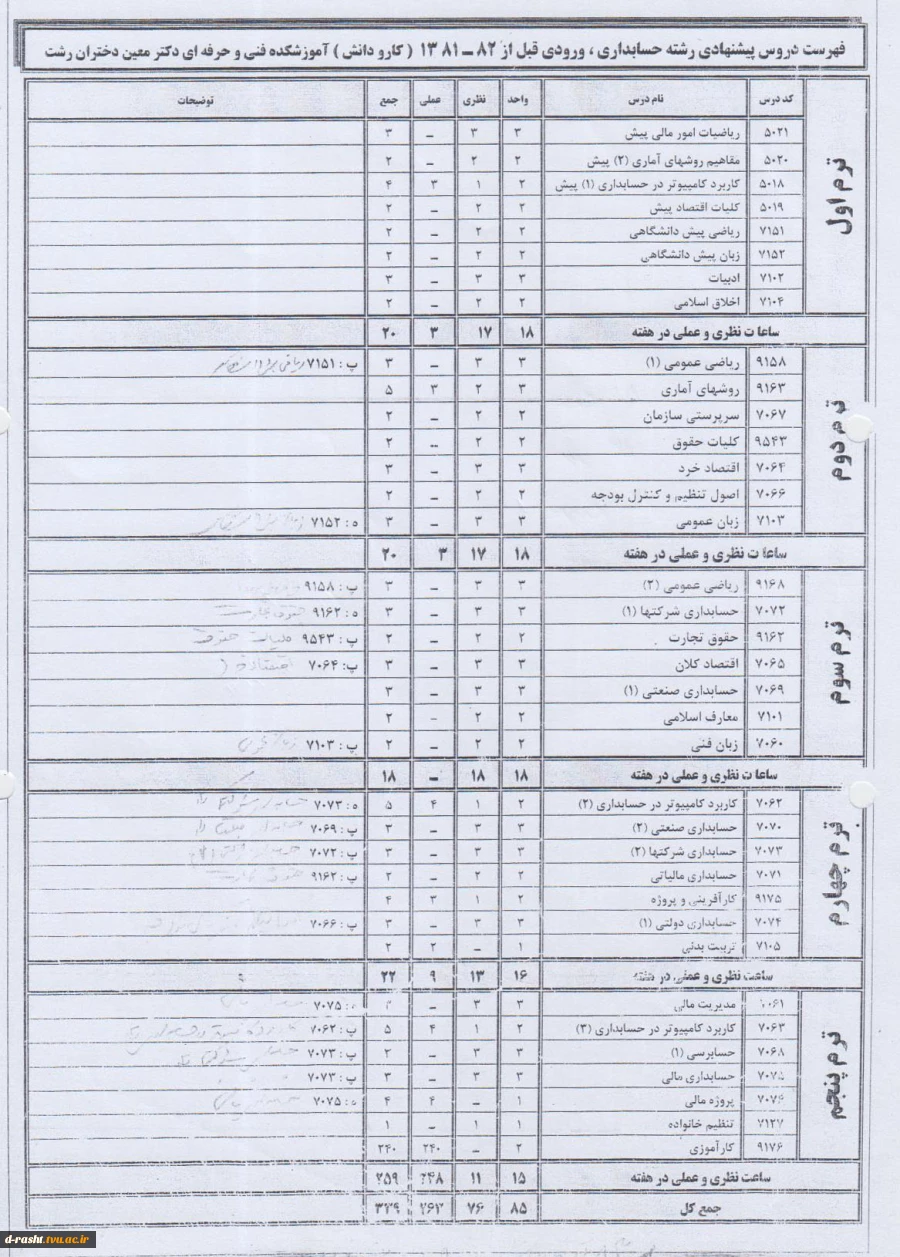 فهرست دروس پیشنهادی رشته حسابداری ، ورودی قبل از ۸۲ ـ ۱۳۸۱ ( کارو دانش ) آموزشکده فنی و حرفه ای دکتر معین دختران رشت
کد درس نام درس واحد نظری عملی جمع توضیحات
ترم اول
۵۰۲۱ ریاضیات امور مالی پیش ۳ ۳ ـ ۳
۵۰۲۰ مفاهیم روشهای آماری (۲) پیش ۲ ۲ ـ ۲
۵۰۱۸ کاربرد کامپیوتر در حسابداری (۱) پیش ۲ ۱ ۳ ۴
۵۰۱۹ کلیات اقتصاد پیش ۲ ۲ ـ ۲
۷۱۵۱ ریاضی پیش دانشگاهی ۲ ۲ ـ ۲
۷۱۵۲ زبان پیش دانشگاهی ۲ ۲ ـ ۲
۷۱۰۲ ادبیات ۳ ۳ ـ ۳
۷۱۰۴ اخلاق اسلامی ۲ ۲ ـ ۲
ساعات نظری و عملی در هفته ۱۸ ۱۷ ۳ ۲۰
ترم دوم
۹۱۵۸ ریاضی عمومی (۱) ۳ ۳ ـ ۳ پ : ۷۱۵۱
۹۱۶۳ روشهای آماری ۳ ۲ ۳ ۵
۷۰۶۷ سرپرستی سازمان ۲ ۲ ـ ۲
۹۵۴۳ کلیات حقوق ۲ ۲ ـ ۲
۷۰۶۴ اقتصاد خرد ۳ ۳ ـ ۳
۷۰۶۶ اصول تنظیم و کنترل بودجه ۲ ۲ ـ ۲
۷۱۰۳ زبان عمومی ۳ ۳ ـ ۳ ه : ۷۱۵۲
ساعات نظری و عملی در هفته ۱۸ ۱۷ ۳ ۲۰
ترم سوم
۹۱۶۸ ریاضی عمومی (۲) ۳ ۳ ـ ۳ پ : ۹۱۵۸
۷۰۷۲ حسابداری شرکتها (۱) ۳ ۳ ـ ۳ ه : ۹۱۶۲
۹۱۶۲ حقوق تجارت ۲ ۲ ـ ۲ پ : ۹۵۴۳ کلیات حقوق
۷۰۶۵ اقتصاد کلان ۳ ۳ ـ ۳ پ: ۷۰۶۴
۷۰۶۹ حسابداری صنعتی (۱) ۳ ۳ ـ ۳
۷۱۰۱ معارف اسلامی ۲ ۲ ـ ۲
۷۰۶۰ زبان فنی ۲ ۲ ـ ۲ پ : ۷۱۰۳
ساعات نظری و عملی در هفته ۱۸ ۱۸ ـ ۱۸
ترم چهارم
۷۰۶۲ کاربرد کامپیوتر در حسابداری (۲) ۲ ۱ ۴ ۵ ه : ۷۰۷۳
۷۰۷۰ حسابداری صنعتی (۲) ۳ ۳ ـ ۳ پ : ۷۰۶۹
۷۰۷۳ حسابداری شرکتها (۲) ۳ ۳ ـ ۳ پ : ۷۰۷۲
۷۰۷۱ حسابداری مالیاتی ۲ ۲ ـ ۲ پ : ۹۱۶۲
۹۱۷۵ کارآفرینی و پروژه ۲ ۱ ۳ ۴
۷۰۷۴ حسابداری دولتی (۱) ۳ ۳ ـ ۳ پ : ۷۰۶۶
۷۱۰۵ تربیت بدنی ۱ ـ ۲ ۲
ساعت نظری و عملی در هفته ۱۶ ۱۳ ۹ ۲۲
ترم پنجم
مدیریت مالی ۳ ۳ ـ ۳ ه : ۷۰۷۵
۷۰۶۳ کاربرد کامپیوتر در حسابداری (۳) ۲ ۱ ۴ ۵ پ : ۷۰۶۲
۷۰۶۸ حسابرسی (۱) ۳ ۳ ـ ۳ پ : ۷۰۷۳
۷۰۷۵ حسابداری مالی ۳ ۳ ـ ۳ پ : ۷۰۷۳
۷۰۷۶ پروژه مالی ۱ ـ ۴ ۴ ه : ۷۰۷۵
۷۱۲۷ تنظیم خانواده ۱ ۱ ـ ۱
۹۱۷۶ کارآموزی ۲ ـ ۲۴۰ ۲۴۰
ساعت نظری و عملی در هفته ۱۵ ۱۱ ۲۴۸ ۲۵۹
جمع کل ۸۵ ۷۶ ۲۶۳ ۳۳۹
d-rasht.tvu.ac.ir